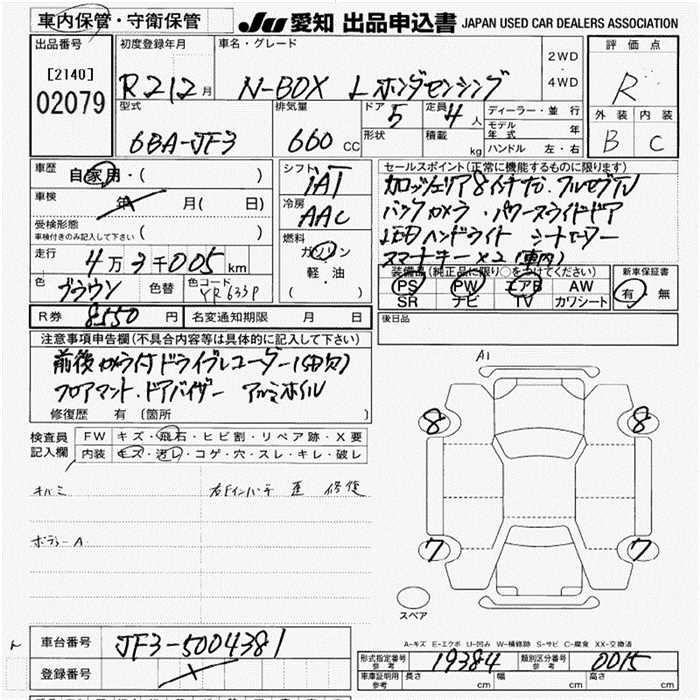 車内保管・守衛保管 JU 愛知 出品申込書 JAPAN USED CAR DEALERS ASSOCIATION
出品番号 初度登録年月 車名・グレード 2WD 評価点
[2140] R212月 N-BOX L ホンダセンシング ・ R
02079 4WD
型式 排気量 ドア 定員 ディーラー・並行 外装 内装
6BA-JF3 660CC 5 4人 モデル年式 年 B C
形状 積載 kg ハンドル 左・右
車歴 自家用・( ) シフト セールスポイント(正常に機能するものに限ります)
車検 年 月( 日) IAT カロッツェリア8インチナビ・フルセグTV
受検形態 冷房 バックカメラ・パワースライドドア
車検付きのみ記入して下さい ( ) AAC LEDヘッドライト シートヒーター
走行 4万3千005km 燃料 スマートキー×2(車内)
ガソリン 装備品(純正品に限り○をつけてください) 新車保証書
色 ブラウン 色替 色コード YR633P 軽・油 PS PW エアB AW 有・無
( ) SR ナビ TV カワシート
R券 8550円 名変通知期限 月 日 後日品
注意事項申告欄(不具合内容等は具体的に記入して下さい)
前後カメラ付ドライブレコーダー(SD欠) A1
フロアマット・ドアバイザー アルミホイル
修復歴 有 (箇所 ) 8 8
検査員 FW キズ・飛石・ヒビ割・リペア跡・X要
記入欄 内装 キズ・汚レ・コゲ・穴・スレ・キレ・破レ
キバミ 右Fインパネ 歪 修復
ボデーA 7 7
スペア
A-キズ E-エクボ U-凹み W-補修跡 S-サビ C-腐食 XX-交換済
車台番号 JF3-5004381
形式指定番号 参考 19384 類別区分番号 参考 0015
登録番号 車庫証明用 参考 長さ cm 幅 cm 高さ cm